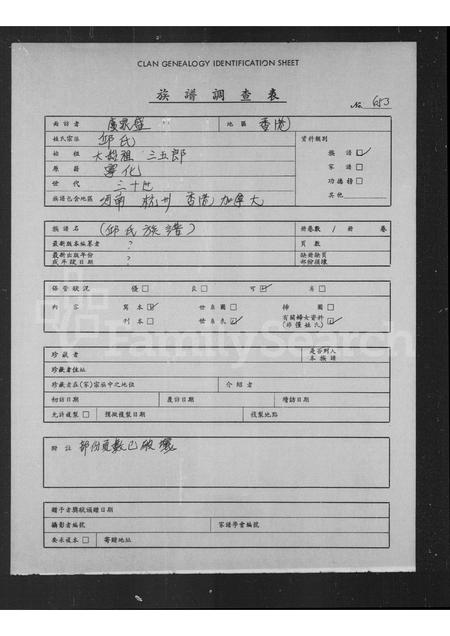 CLAN GENEALOGY IDENTIFICATION SHEET
族譜調查表
No. 653
面訪者 地區 香港
姓氏宗派 邱氏 資料類別
始祖 大 祖 三五郎 族譜
原籍 寧化 家譜
世代 三十世 功德榜
族譜包含地區 河南 杭州 香港 加拿大 其他
族譜名 (邱氏族譜) 冊卷數 1 冊 卷
最新版本編纂者 ? 頁數
最新出版年份 缺冊缺頁
或年號日期 ? 部份損壞
保管狀況 優 良 可 劣
內容 寫本 世系圖 插圖
刊本 世系表 有關婦女資料
(非僅姓氏)
珍藏者 是否列入
本族譜
珍藏者住址
珍藏者在(家)宗族中之地位 介紹者
初訪日期 覆訪日期 續訪日期
允許複製 預擬複製日期 複製地點
附註 部份頁數已破壞
贈予者獎狀頒贈日期
攝影者編號 家譜學會編號
要求複本 寄贈地址
FamilySearch